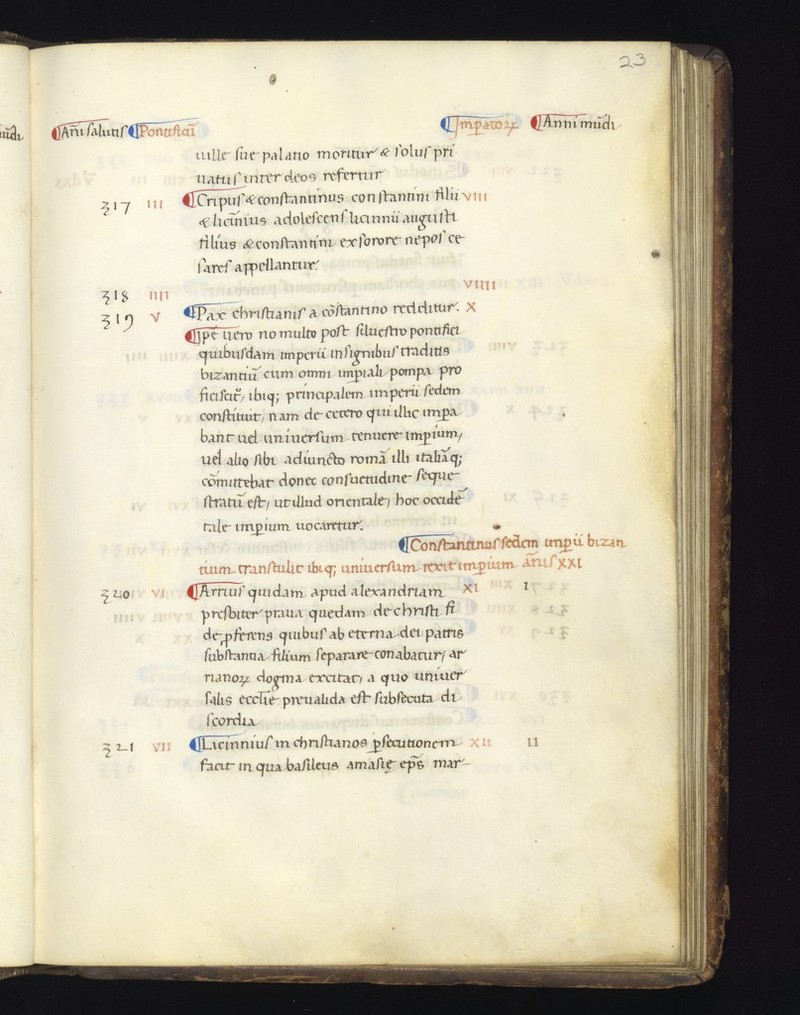 23
Añi salutis Pontificũ Imꝑatoꝝ Anni mũdi
uille sue palatio moritur & solus pri
uatus inter deos refertur
317 III Cripus & constantinus constantini filii VIII
& licĩnius adolescens licinnii augusti
filius & constantini ex sorore nepos ce
sares appellantur.
318 IIII VIIII
319 V Pax christianis a cõstantino redditur. X
Ipe uero no multo post siluestro pontifici
quibusdam imperii insignibus traditis
bizantiũ cum omni imꝑiali pompa pro
ficiscit̃, ibiq; principalem imperii sedem
constituit, nam de cetero qui illic imꝑa
bant uel uniuersum tenuere imꝑium,
uel alio sibi adiuncto romã illi italiãq;
cõmittebat donec consuetudine seque
stratũ est, ut illud orientale, hoc occidẽ
tale imꝑium uocaretur.
Constantinus sedem imꝑii bizan
tium transtulit ibiq; uniuersum rexit imꝑium ãnis XXI
320 VI Arrius quidam apud alexandriam XI I
presbiter praua quedam de christi fi
de ꝓferens quibus ab eterna dei patris
substantia filium separare conabatur, ar
rianoꝝ dogma excitat, a quo uniuer
salis eccl̃ie preualida est subsecuta di
scordia
321 VII Licinnius in christianos ꝑsecutionem XII II
facit in qua basileus amasię ep̃s mar-